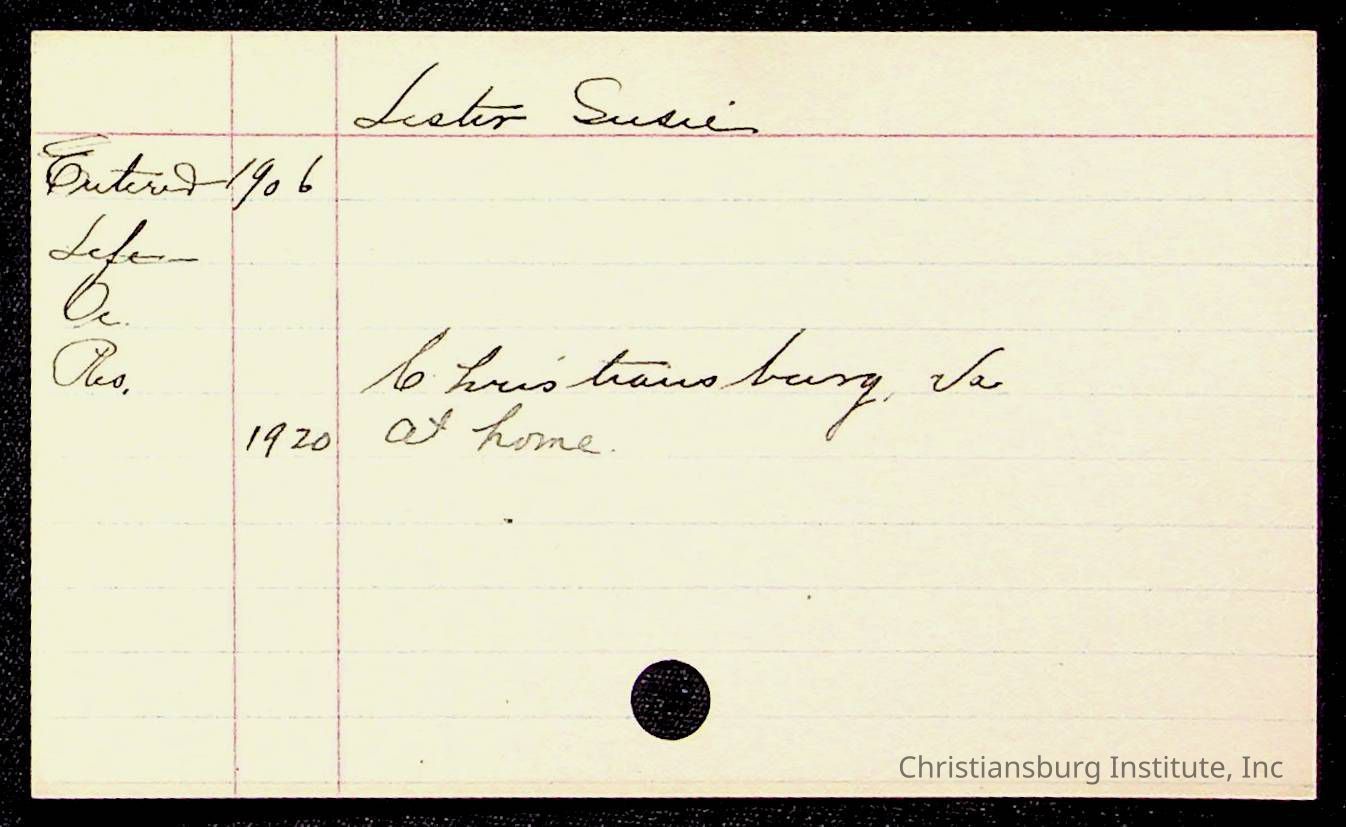 Lester Susie
Entered 1906
Left
Oc.
Res. Christiansburg, Va
1920 at home.
Christiansburg Institute, Inc